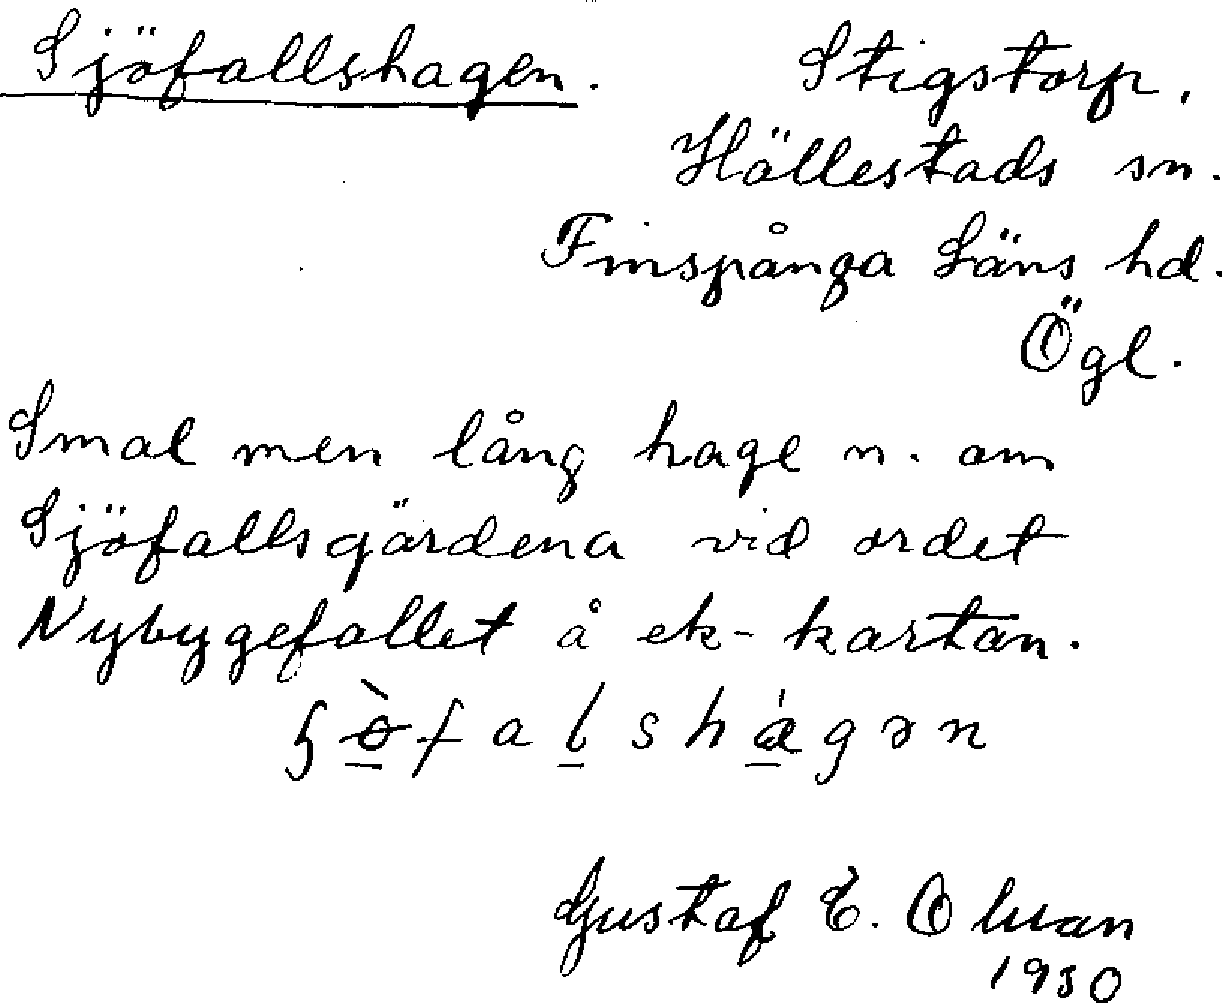 Sjöfallshagen. Stigstorp,
Hällestads sn.
Finspånga Läns hd.
Ögl.
Smal men lång hage n. om
Sjöfallsgärdena vid ordet
Nybygefallet å ek-kartan.
Gustaf E.
1930